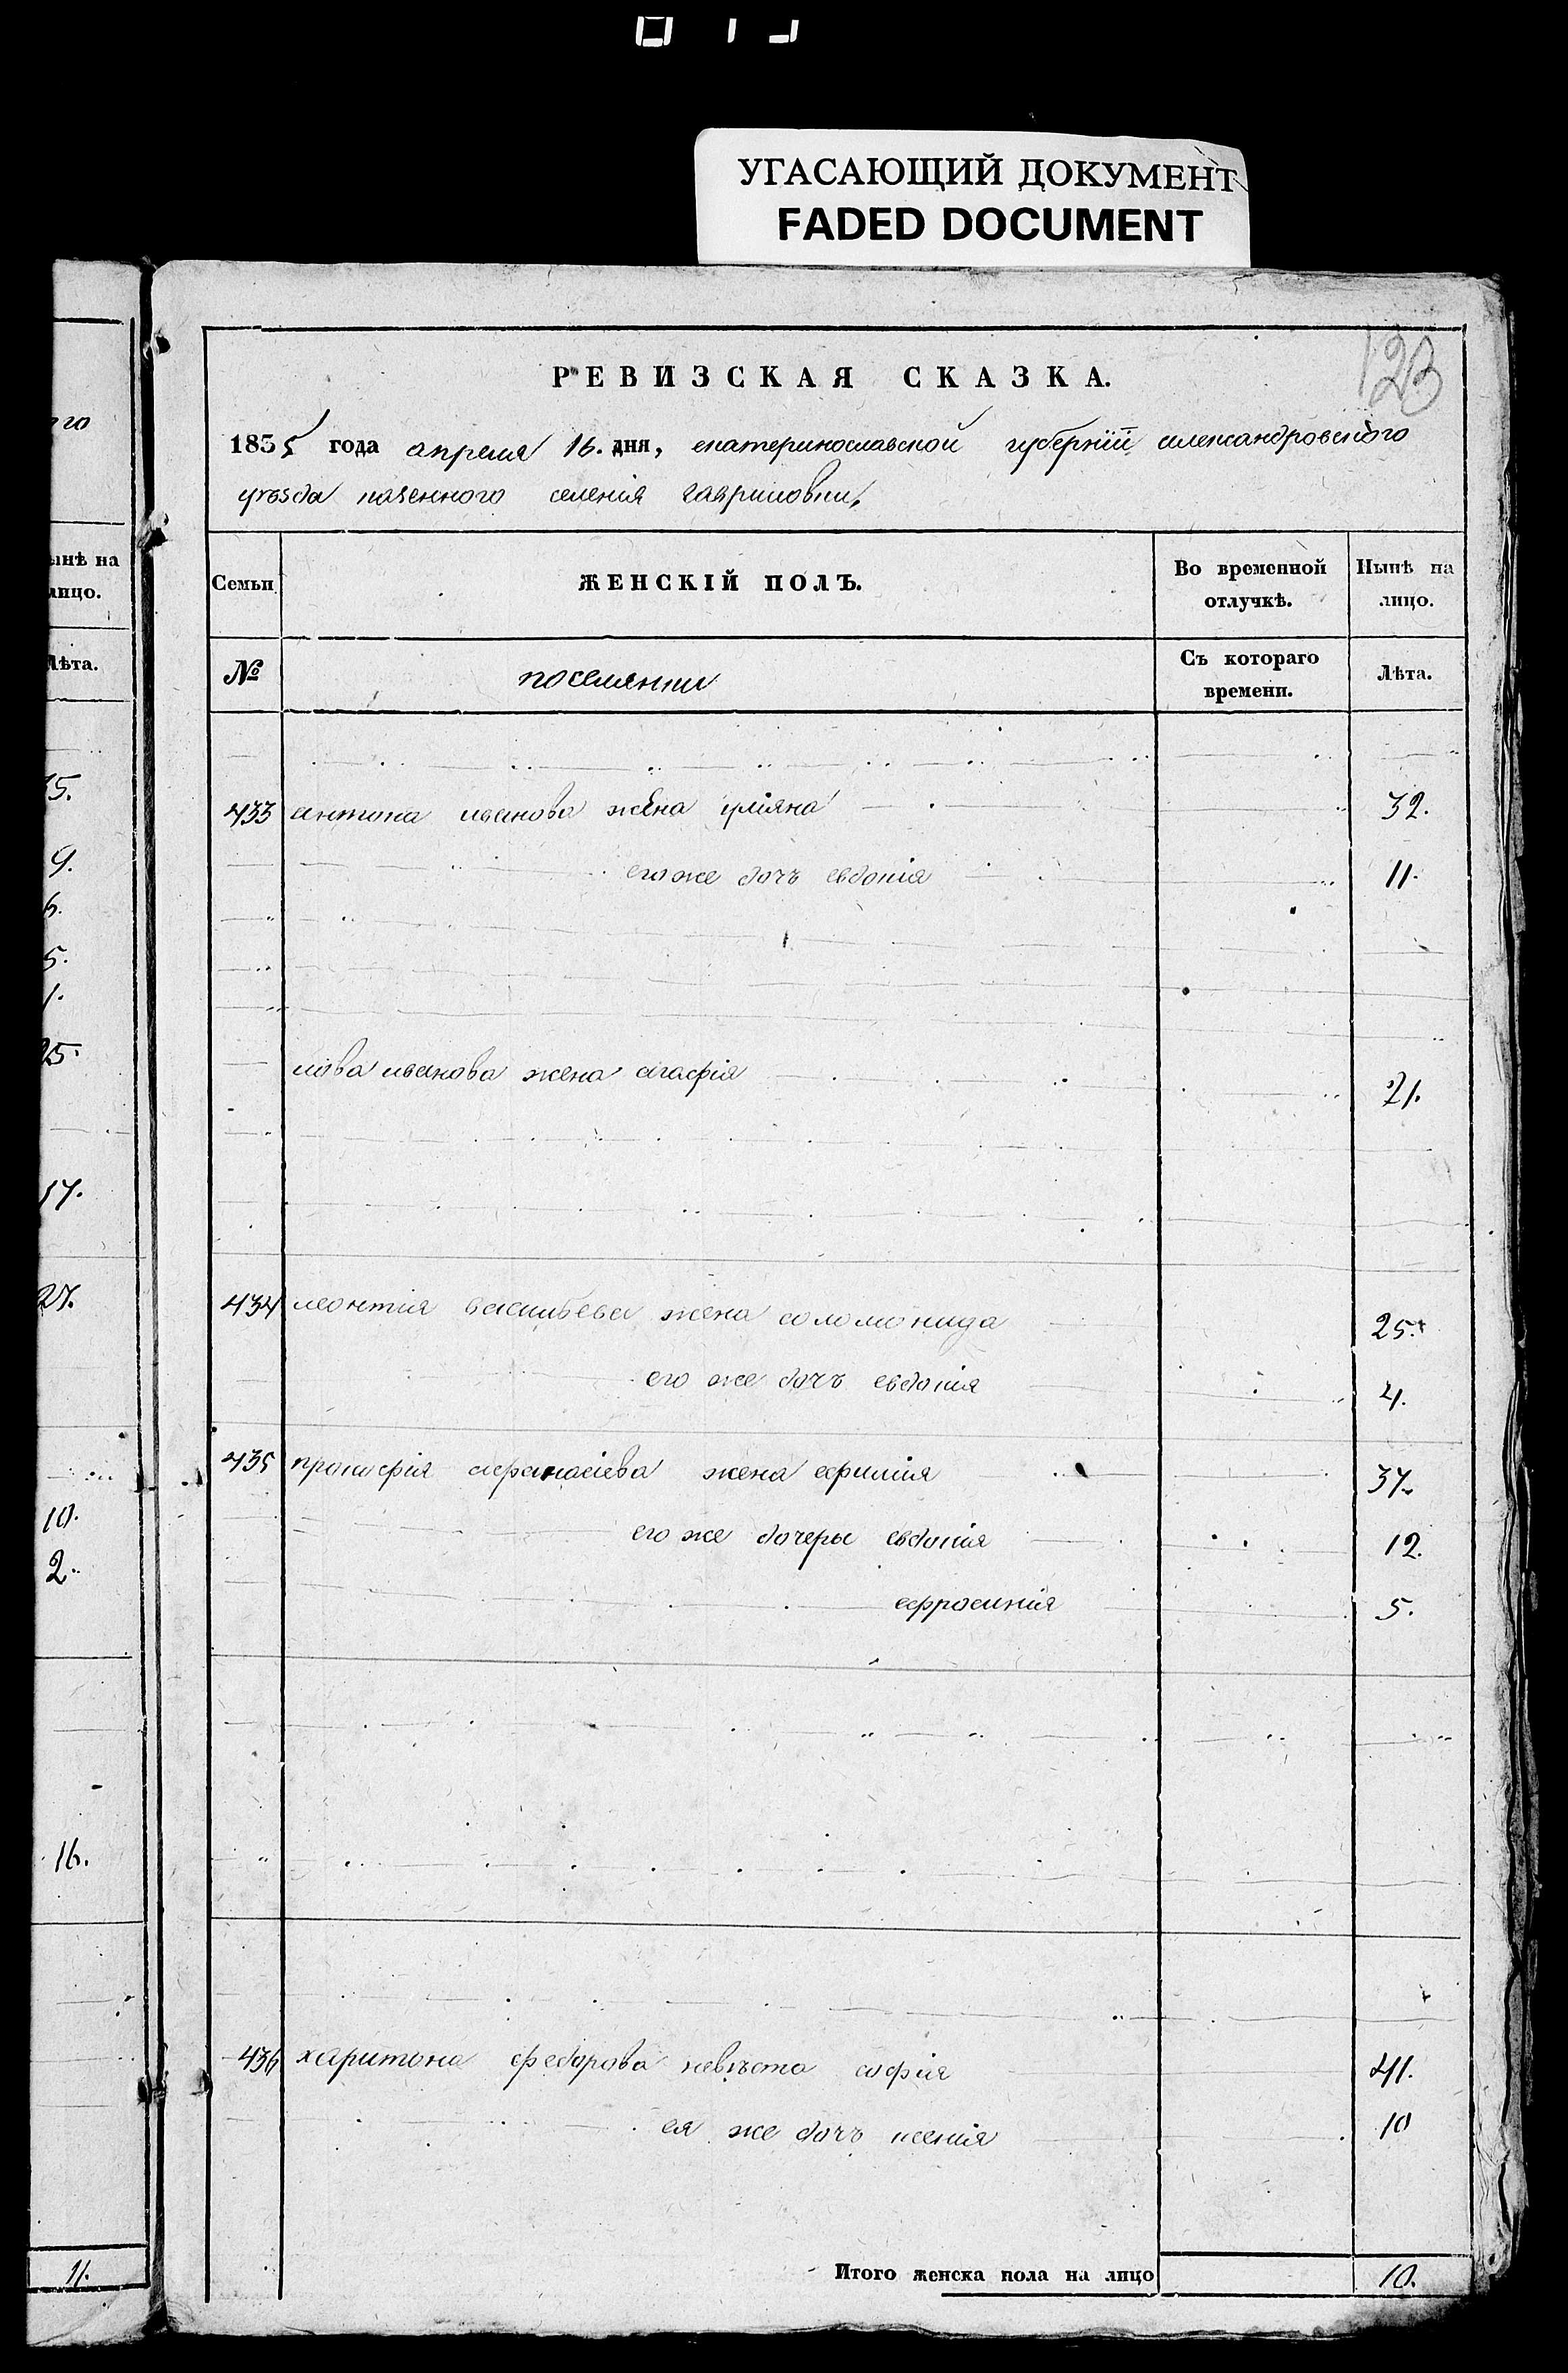 УГАСАЮЩИЙ ДОКУМЕНТ
FADED DOCUMENT
123
РЕВИЗСКАЯ СКАЗКА.
1835 года апреля 16. дня, екатеринославской губернїй александровского
уезда казенного селенія гавриловки,
Семьи
ЖЕНСКІЙ ПОЛЪ.
Во временной отлучкѣ.
Нынѣ на лицо.
№
поселянки
Съ котораго времени.
Лѣта.
433 антона иванова жена уліяна 32.
его же дочъ евдокія 11.
иова иванова жена агафія 21.
434 леонтія васильева жена соломонида 25.
его же дочъ евдокія 4.
435 прокофія афанасіева жена ефимія 37.
его же дочеры евдокія 12.
ефросинія 5.
436 харитона федорова невѣста софія 41.
ея же дочъ ксенія 10
Итого женска пола на лицо 10.
ынѣ на
лицо.
Лѣта.
15.
9.
6.
5.
1.
25.
17.
27.
10.
2.
16.
11.